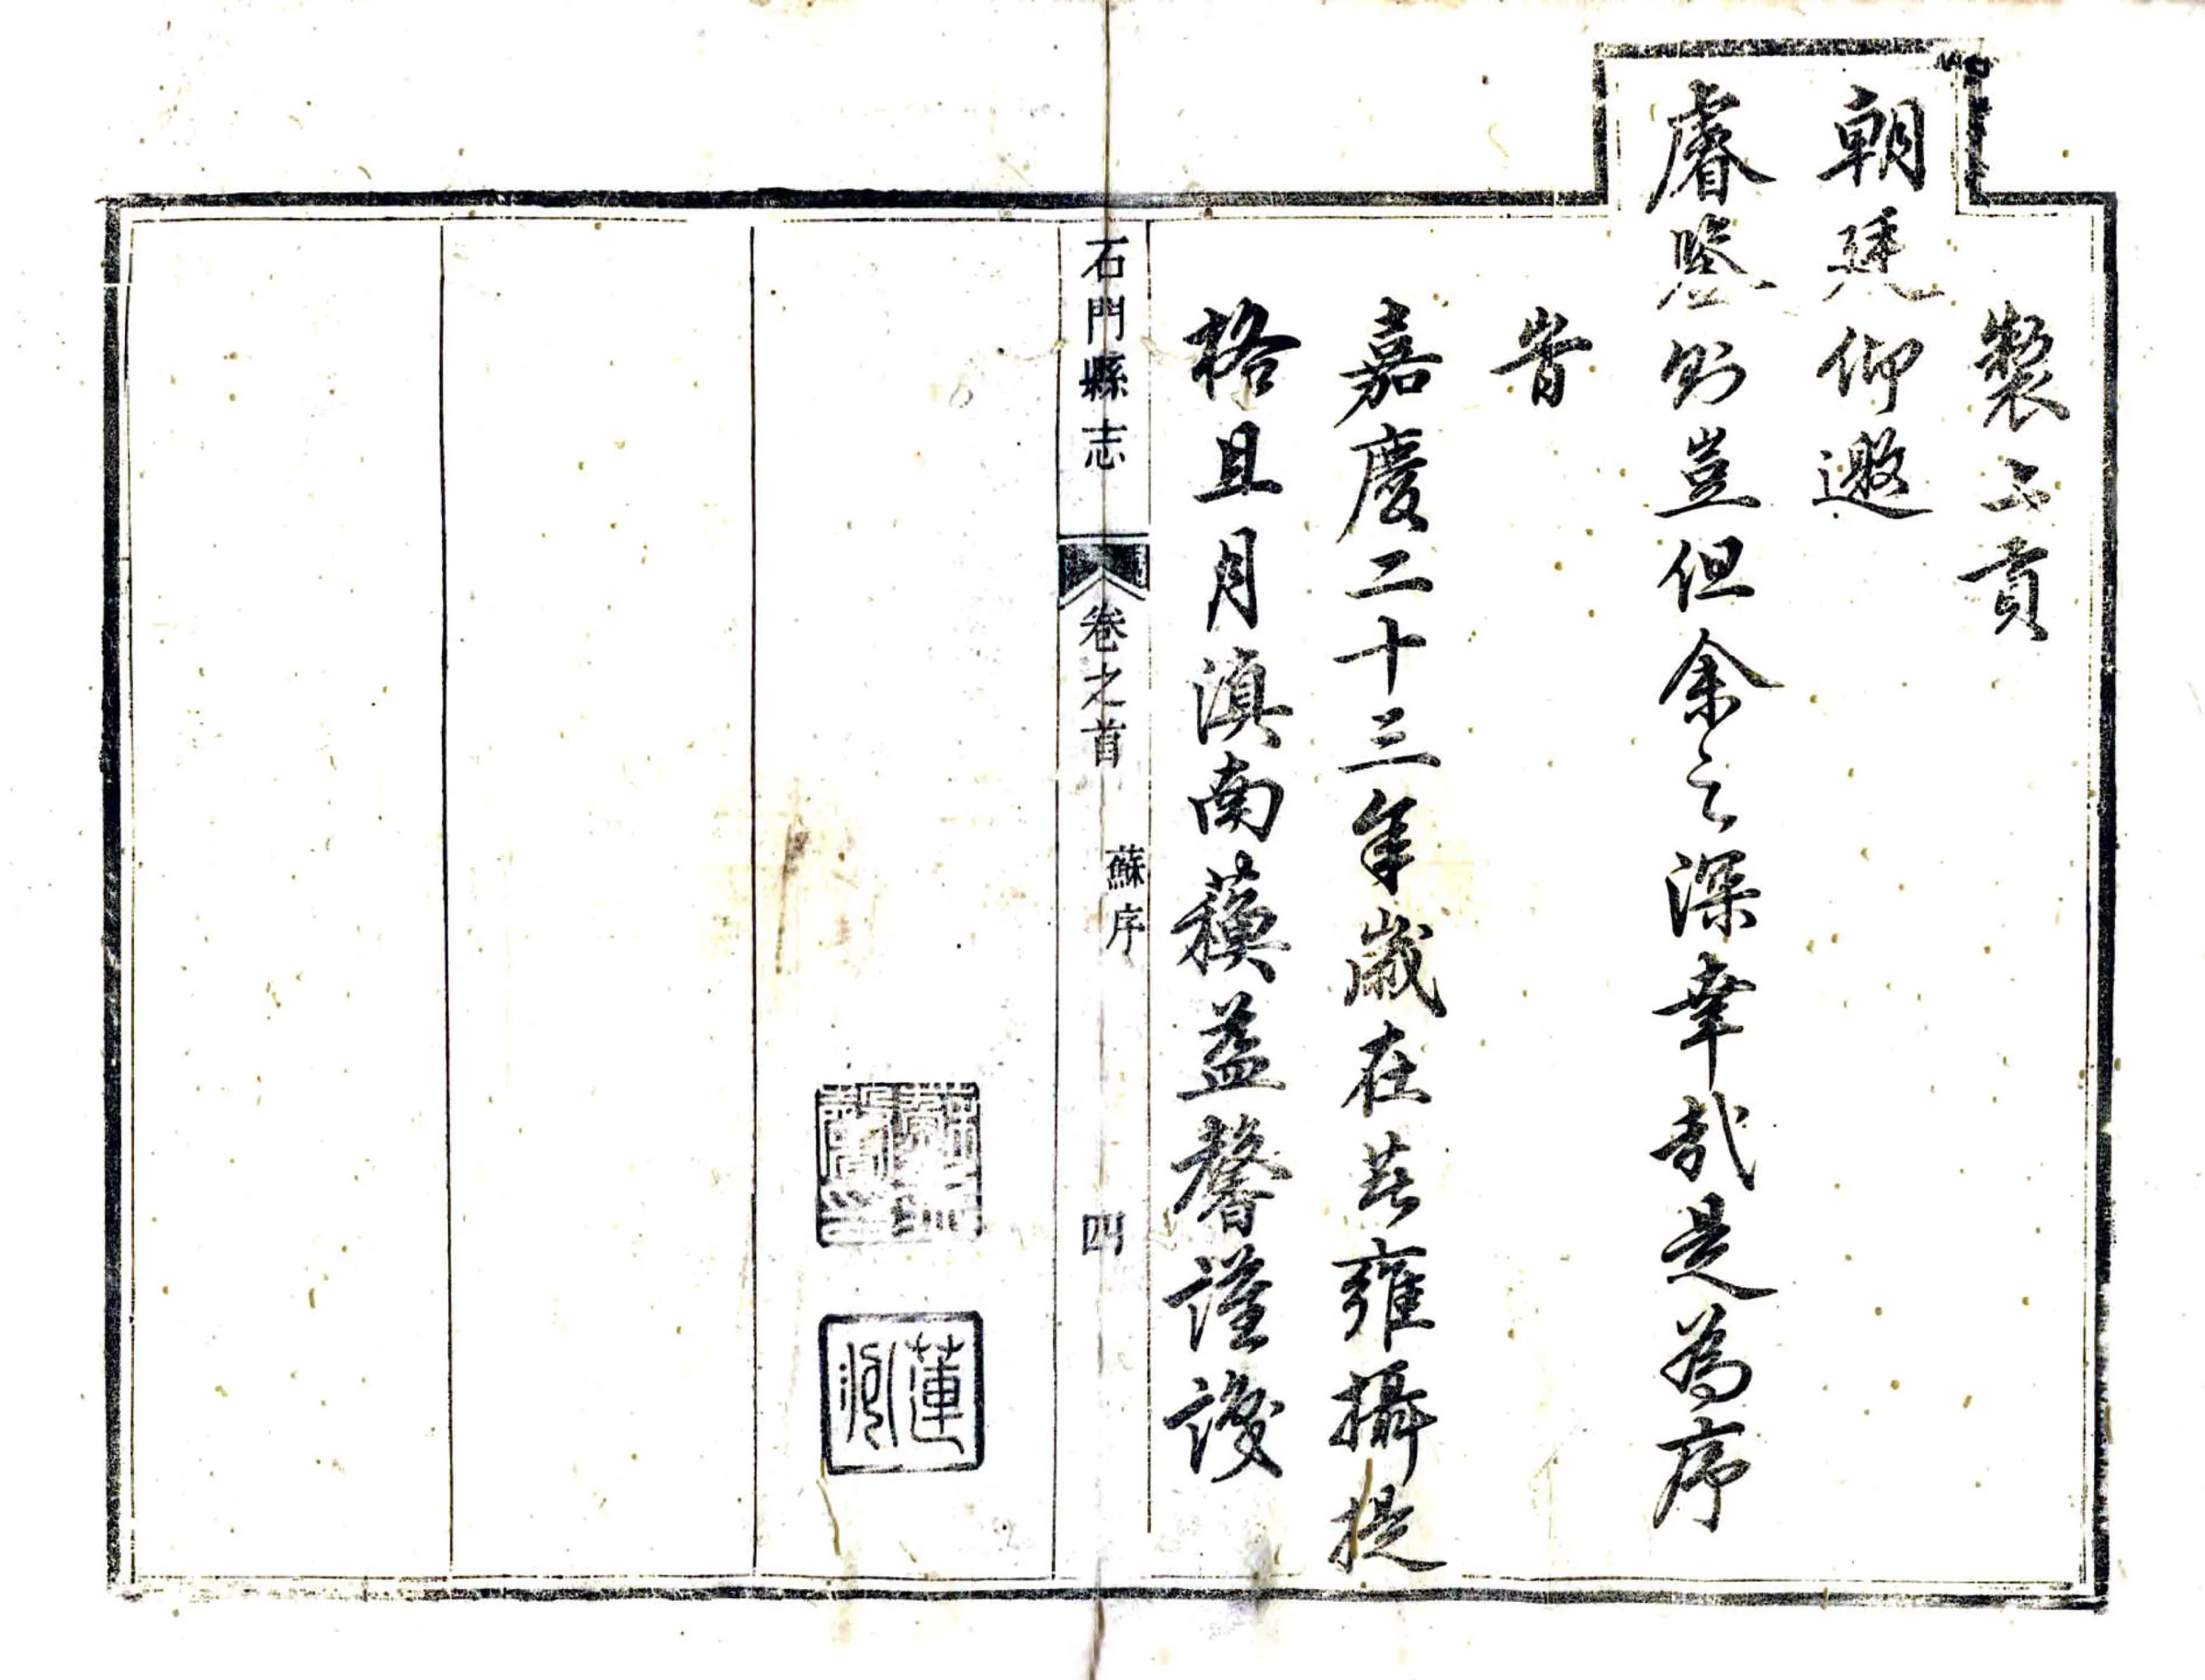 製上貢
朝廷仰邀
睿鑒則豈但余之深幸哉是為序
旹
嘉慶二十三年歲在著雍攝提
格且月滇南蘓益馨謹譔
石門縣志
卷之首
蘇序
四
蓮